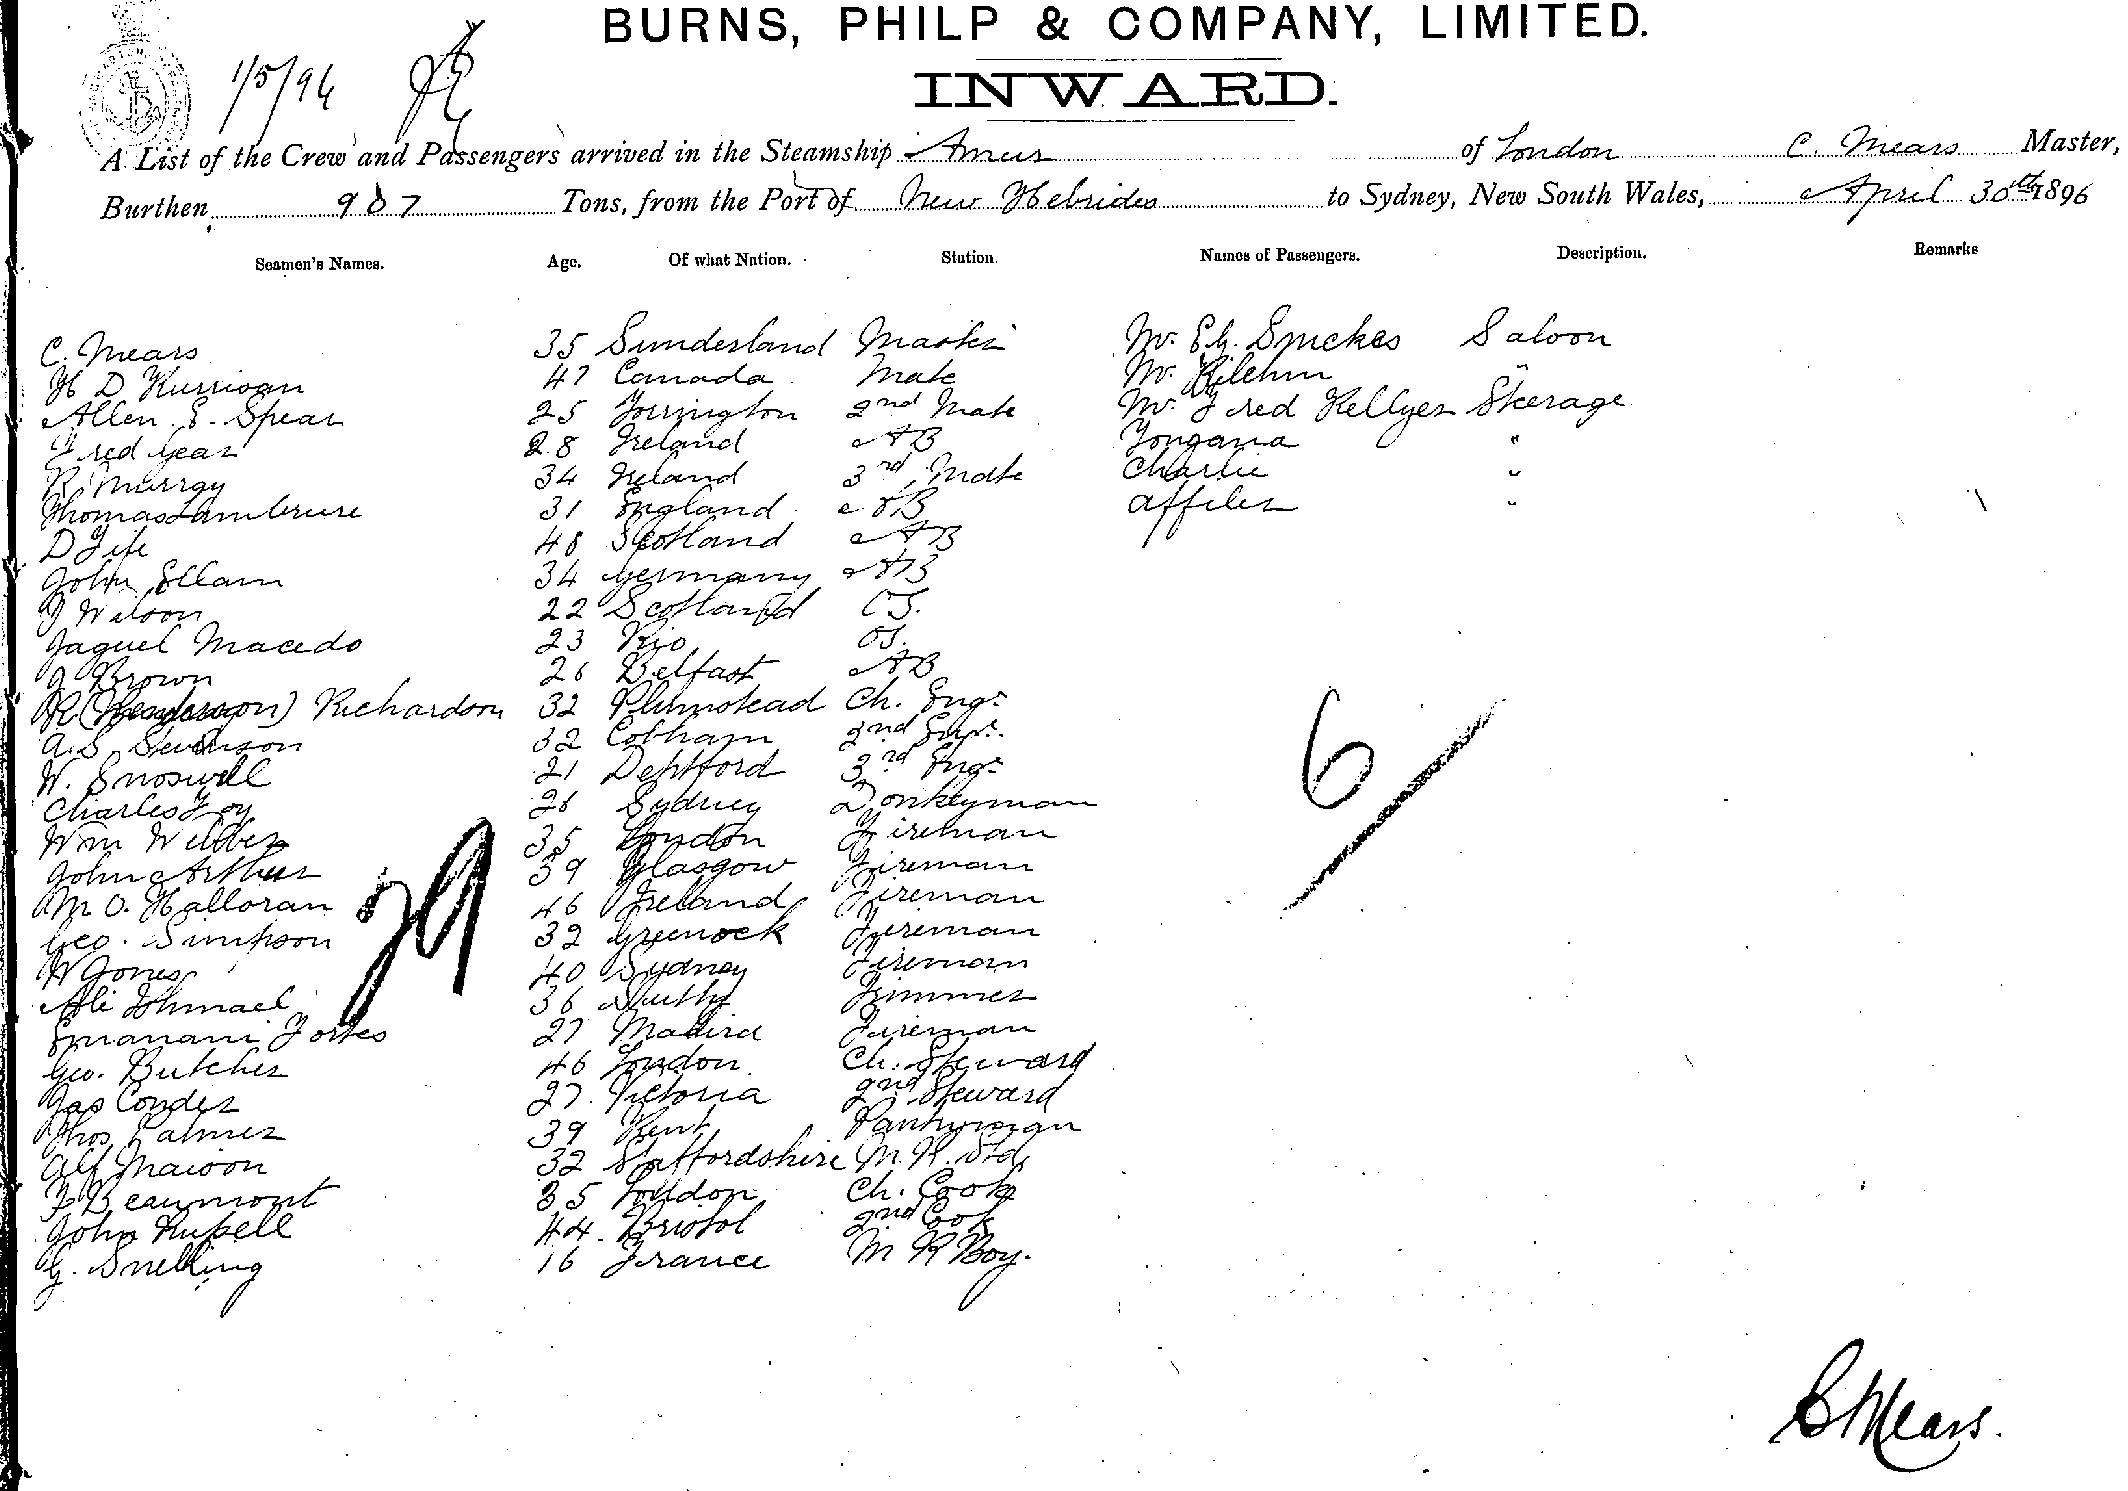 BURNS, PHILP & COMPANY, LIMITED.
1/5/96
INWARD.
A List of the Crew and Passengers arrived in the Steamship of London C. Mears Master,
Burthen 907 Tons, from the Port of New Hebrides to Sydney, New South Wales, April 30th 1896
Seamen's Names. Age. Of what Nation. Station. Names of Passengers. Description. Remarks
C. Mears 35 Sunderland Master Mr. Saloon
H D Kurrigan 47 Canada Mate Mr. "
Allen E. Spear 25 Torrington 2nd Mate Mr. Fred Kellyer Steerage
Fred Gear 28 Ireland AB Tongana "
R. Murray 34 Ireland 3rd Mate Charlie "
Thomas 31 England AB "
D Fife 48 Scotland AB
John Ellam 34 Germany AB
J Wilson 22 Scotland OS.
Jaquel Macedo 23 Rio OS.
J Brown 26 Belfast AB
R (Henderson) Richardson 32 Plumstead Ch. Engr
A.S. Stevenson 32 Cobham 2nd Engr.
W. Snoswell 21 Deptford 3rd Engr
Charles Foy 26 Sydney Donkeyman
6
Wm Wilber 35 London Fireman
John Arthur 39 Glasgow Fireman
M O. Halloran 46 Ireland Fireman
29
Geo. Simpson 32 Greenock Fireman
W Jones 40 Sydney Fireman
Ali Ishmael 36 Trimmer
Fortes 27 Madira Fireman
Geo. Butcher 46 London Ch. Steward
Jas Conder 27. Victoria 2nd Steward
Thos Palmer 39 Kent Pantryman
Alf Mawson 32 Staffordshire M. R. Std
F Beaumont 35 London Ch. Cook
John Russell 44. Bristol 2nd Cook
G. Snelling 16 France M R Boy.
C Mears.